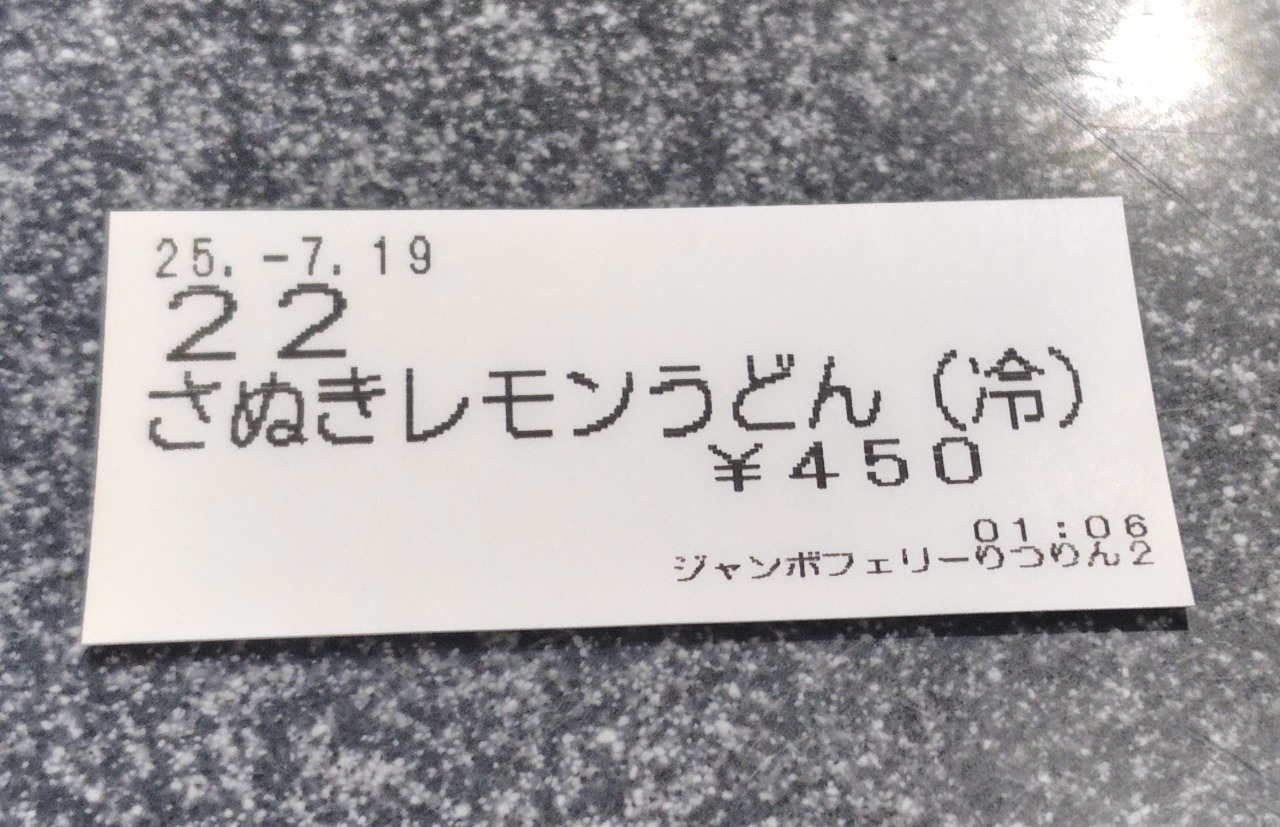 25.-7.19
22
さぬきレモンうどん(冷)
¥450
01:06
ジャンボフェリーりつりん2